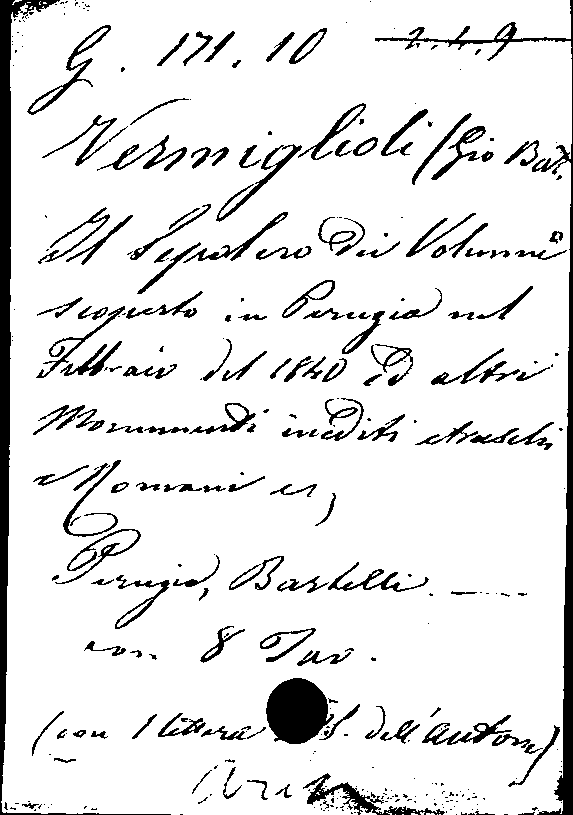 G. 171.10 2.4.9
Vermiglioli (Gio Bat.
Il Sepolcro Dei Volunni
scoperto in Perugia nel
Febbraio del 1840 Ed altri
Monumenti inediti etruschi
e Romani ec,
Perugia, Bartelli. —
con 8 Tav.
(con 1 lettera S. dell'autore)